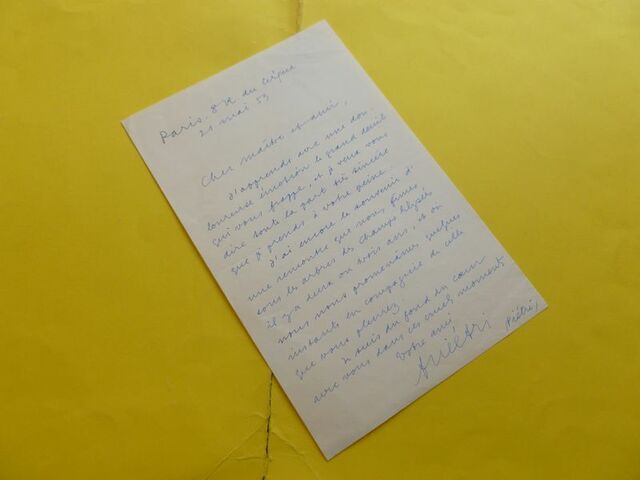 Paris. 8 R du Cirque
21 mai 53
Cher maître et ami,
J'apprends avec une dou-
loureuse émotion le grand deuil
qui vous frappe, et je veux vous
dire toute la part très sincère
que je prends à votre peine.
J'ai encore le souvenir d'
une rencontre que nous fîmes
sous les arbres des Champs Elysées
il y a deux ou trois ans, et où
nous nous promenâmes quelques
instants en compagnie de celle
que vous pleurez.
Je suis du fond du cœur
avec vous dans ces cruels moments
Votre ami,
(Piétri)